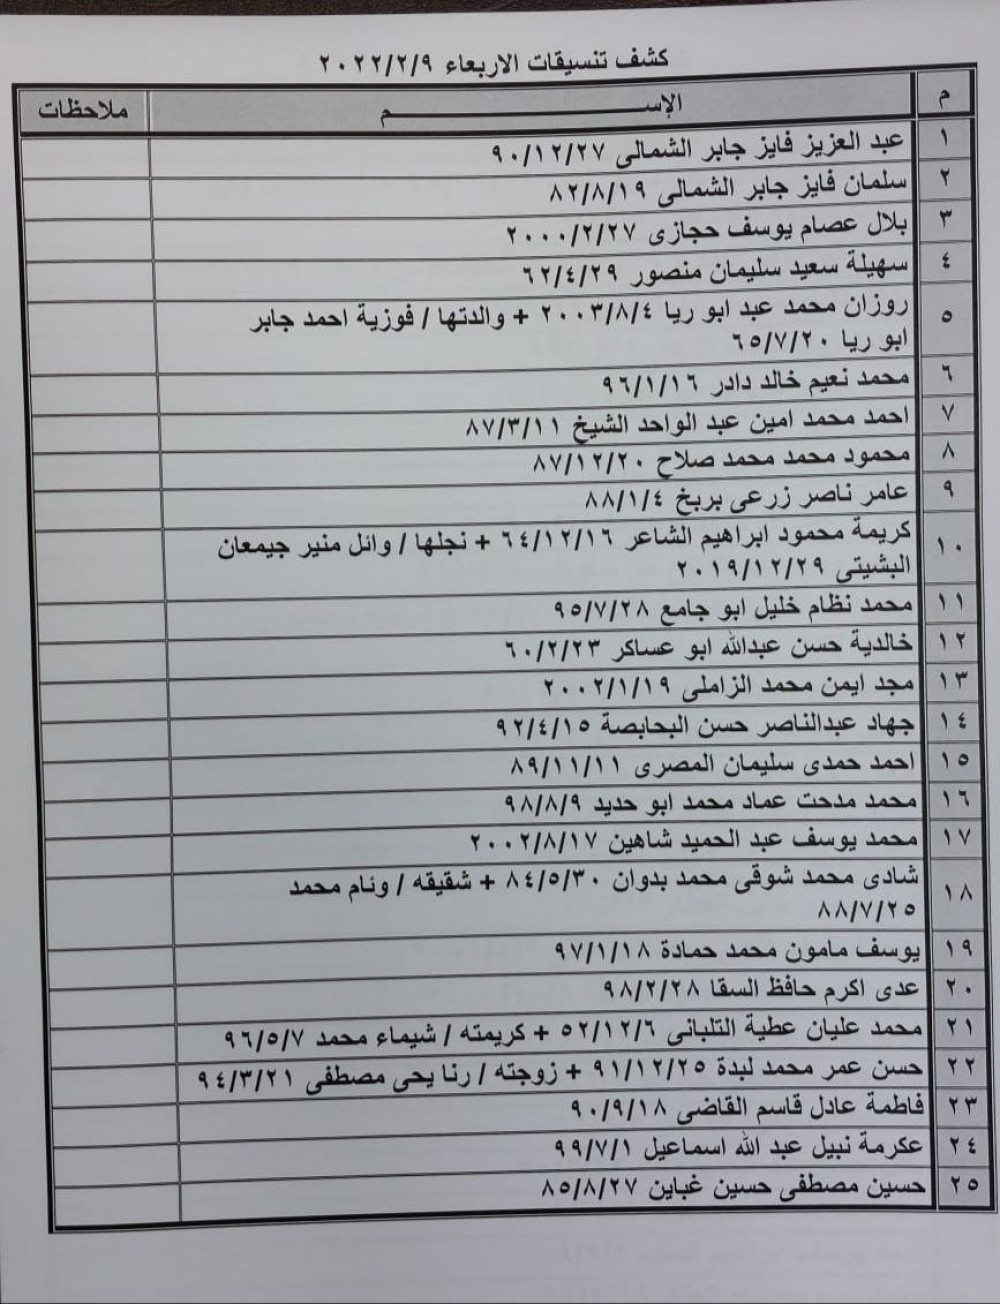 كشف تنسيقات الاربعاء ٢٠٢٢/٢/٩
م الإســـــــــم ملاحظات
١ عبد العزيز فايز جابر الشمالى ٩٠/١٢/٢٧
٢ سلمان فايز جابر الشمالى ٨٢/٨/١٩
٣ بلال عصام يوسف حجازى ٢٠٠٠/٢/٢٧
٤ سهيلة سعيد سليمان منصور ٦٢/٤/٢٩
٥ روزان محمد عبد ابو ريا ٢٠٠٣/٨/٤ + والدتها / فوزية احمد جابر
ابو ريا ٦٥/٧/٢٠
٦ محمد نعيم خالد دادر ٩٦/١/١٦
٧ احمد محمد امين عبد الواحد الشيخ ٨٧/٣/١١
٨ محمود محمد محمد صلاح ٨٧/١٢/٢٠
٩ عامر ناصر زرعى بربخ ٨٨/١/٤
١٠ كريمة محمود ابراهيم الشاعر ٦٤/١٢/١٦ + نجلها / وائل منير جيمعان
البشيتى ٢٠١٩/١٢/٢٩
١١ محمد نظام خليل ابو جامع ٩٥/٧/٢٨
١٢ خالدية حسن عبدالله ابو عساكر ٦٠/٢/٢٣
١٣ مجد ايمن محمد الزاملى ٢٠٠٢/١/١٩
١٤ جهاد عبدالناصر حسن البحابصة ٩٢/٤/١٥
١٥ احمد حمدى سليمان المصرى ٨٩/١١/١١
١٦ محمد مدحت عماد محمد ابو حديد ٩٨/٨/٩
١٧ محمد يوسف عبد الحميد شاهين ٢٠٠٢/٨/١٧
١٨ شادى محمد شوقى محمد بدوان ٨٤/٥/٣٠ + شقيقه / وئام محمد
٨٨/٧/٢٥
١٩ يوسف مامون محمد حمادة ٩٧/١/١٨
٢٠ عدى اكرم حافظ السقا ٩٨/٢/٢٨
٢١ محمد عليان عطية التلبانى ٥٢/١٢/٦ + كريمته / شيماء محمد ٩٦/٥/٧
٢٢ حسن عمر محمد لبدة ٩١/١٢/٢٥ + زوجته / رنا يحى مصطفى ٩٤/٣/٢١
٢٣ فاطمة عادل قاسم القاضى ٩٠/٩/١٨
٢٤ عكرمة نبيل عبد الله اسماعيل ٩٩/٧/١
٢٥ حسين مصطفى حسين غباين ٨٥/٨/٢٧